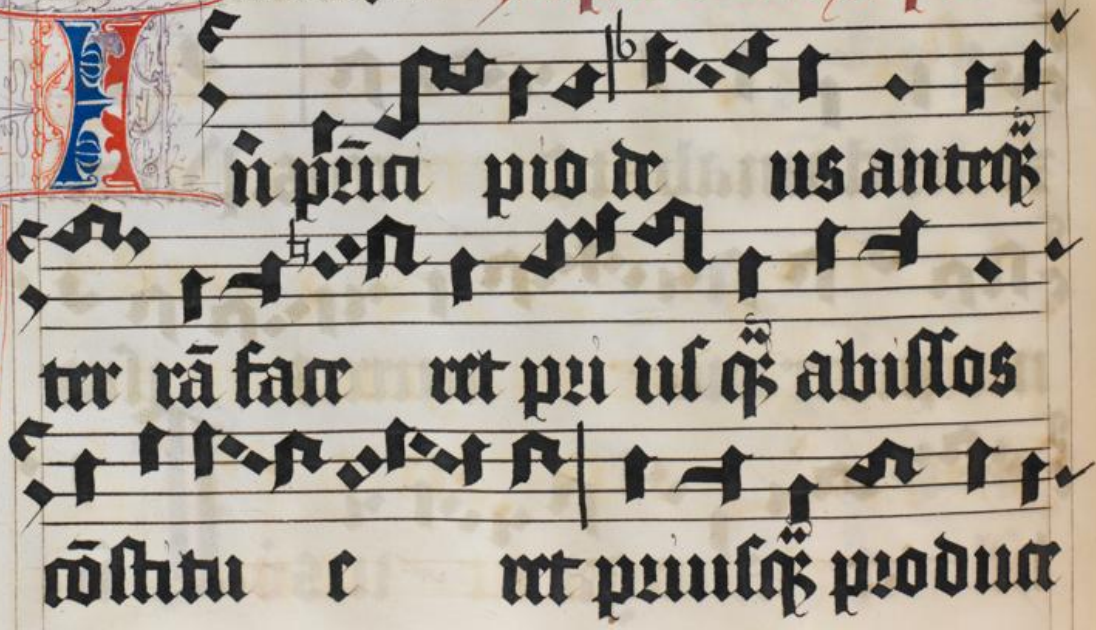 In̄ prīci pio de us anteq̈ꝫ
ter rā face ret pri usq̈ꝫ abissos
cōstitu e ret priusq̈ꝫ produce